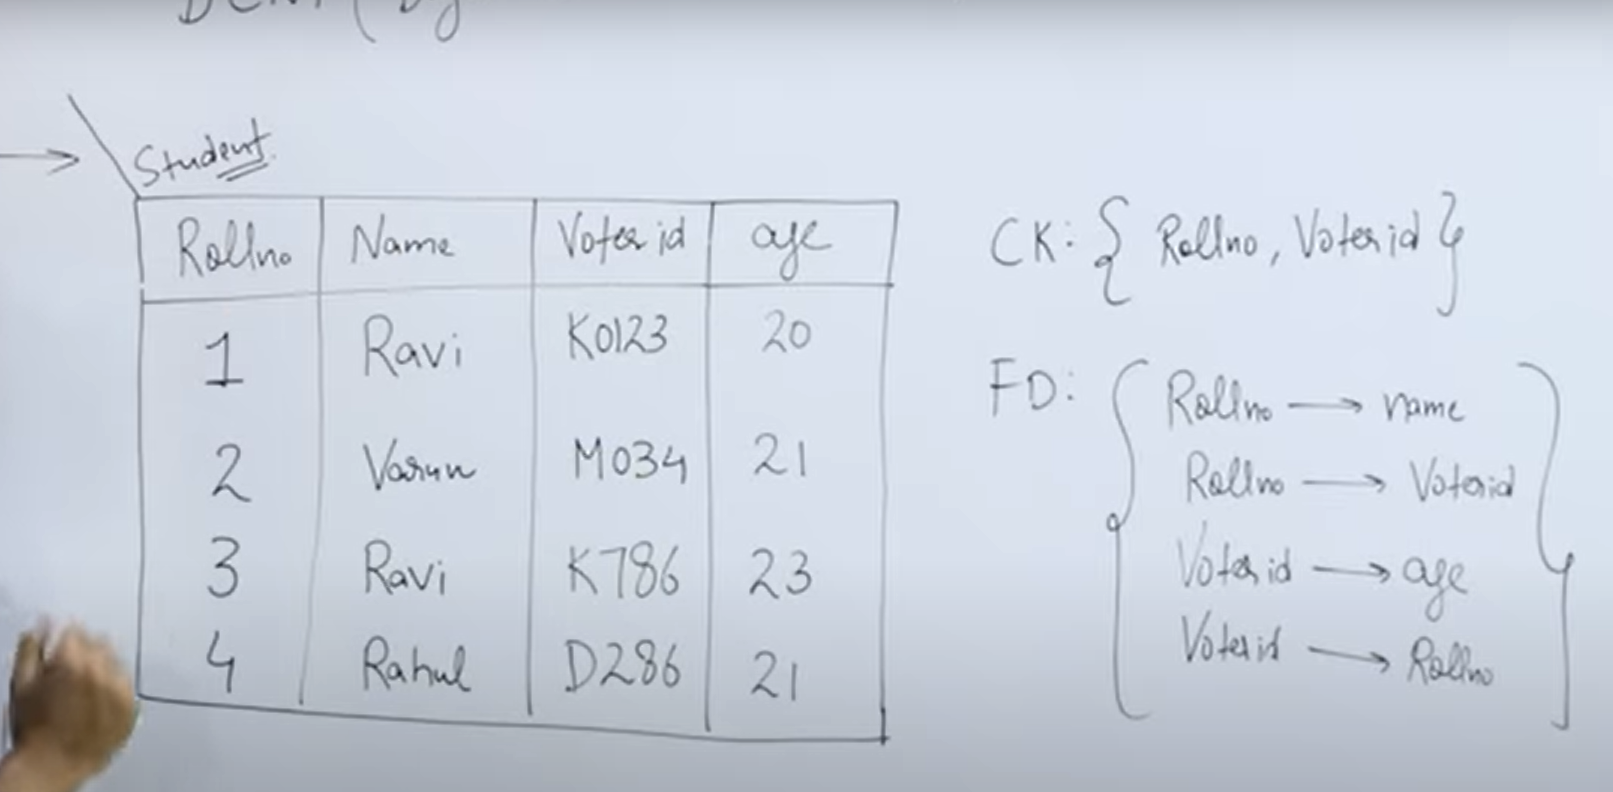 Student
Rollno Name Voter id age
1 Ravi K0123 20
2 Varun M034 21
3 Ravi K786 23
4 Rahul D286 21
CK: { Rollno, Voter id }
FD: { Rollno → name
Rollno → Voterid
Voter id → age
Voterid → Rollno }